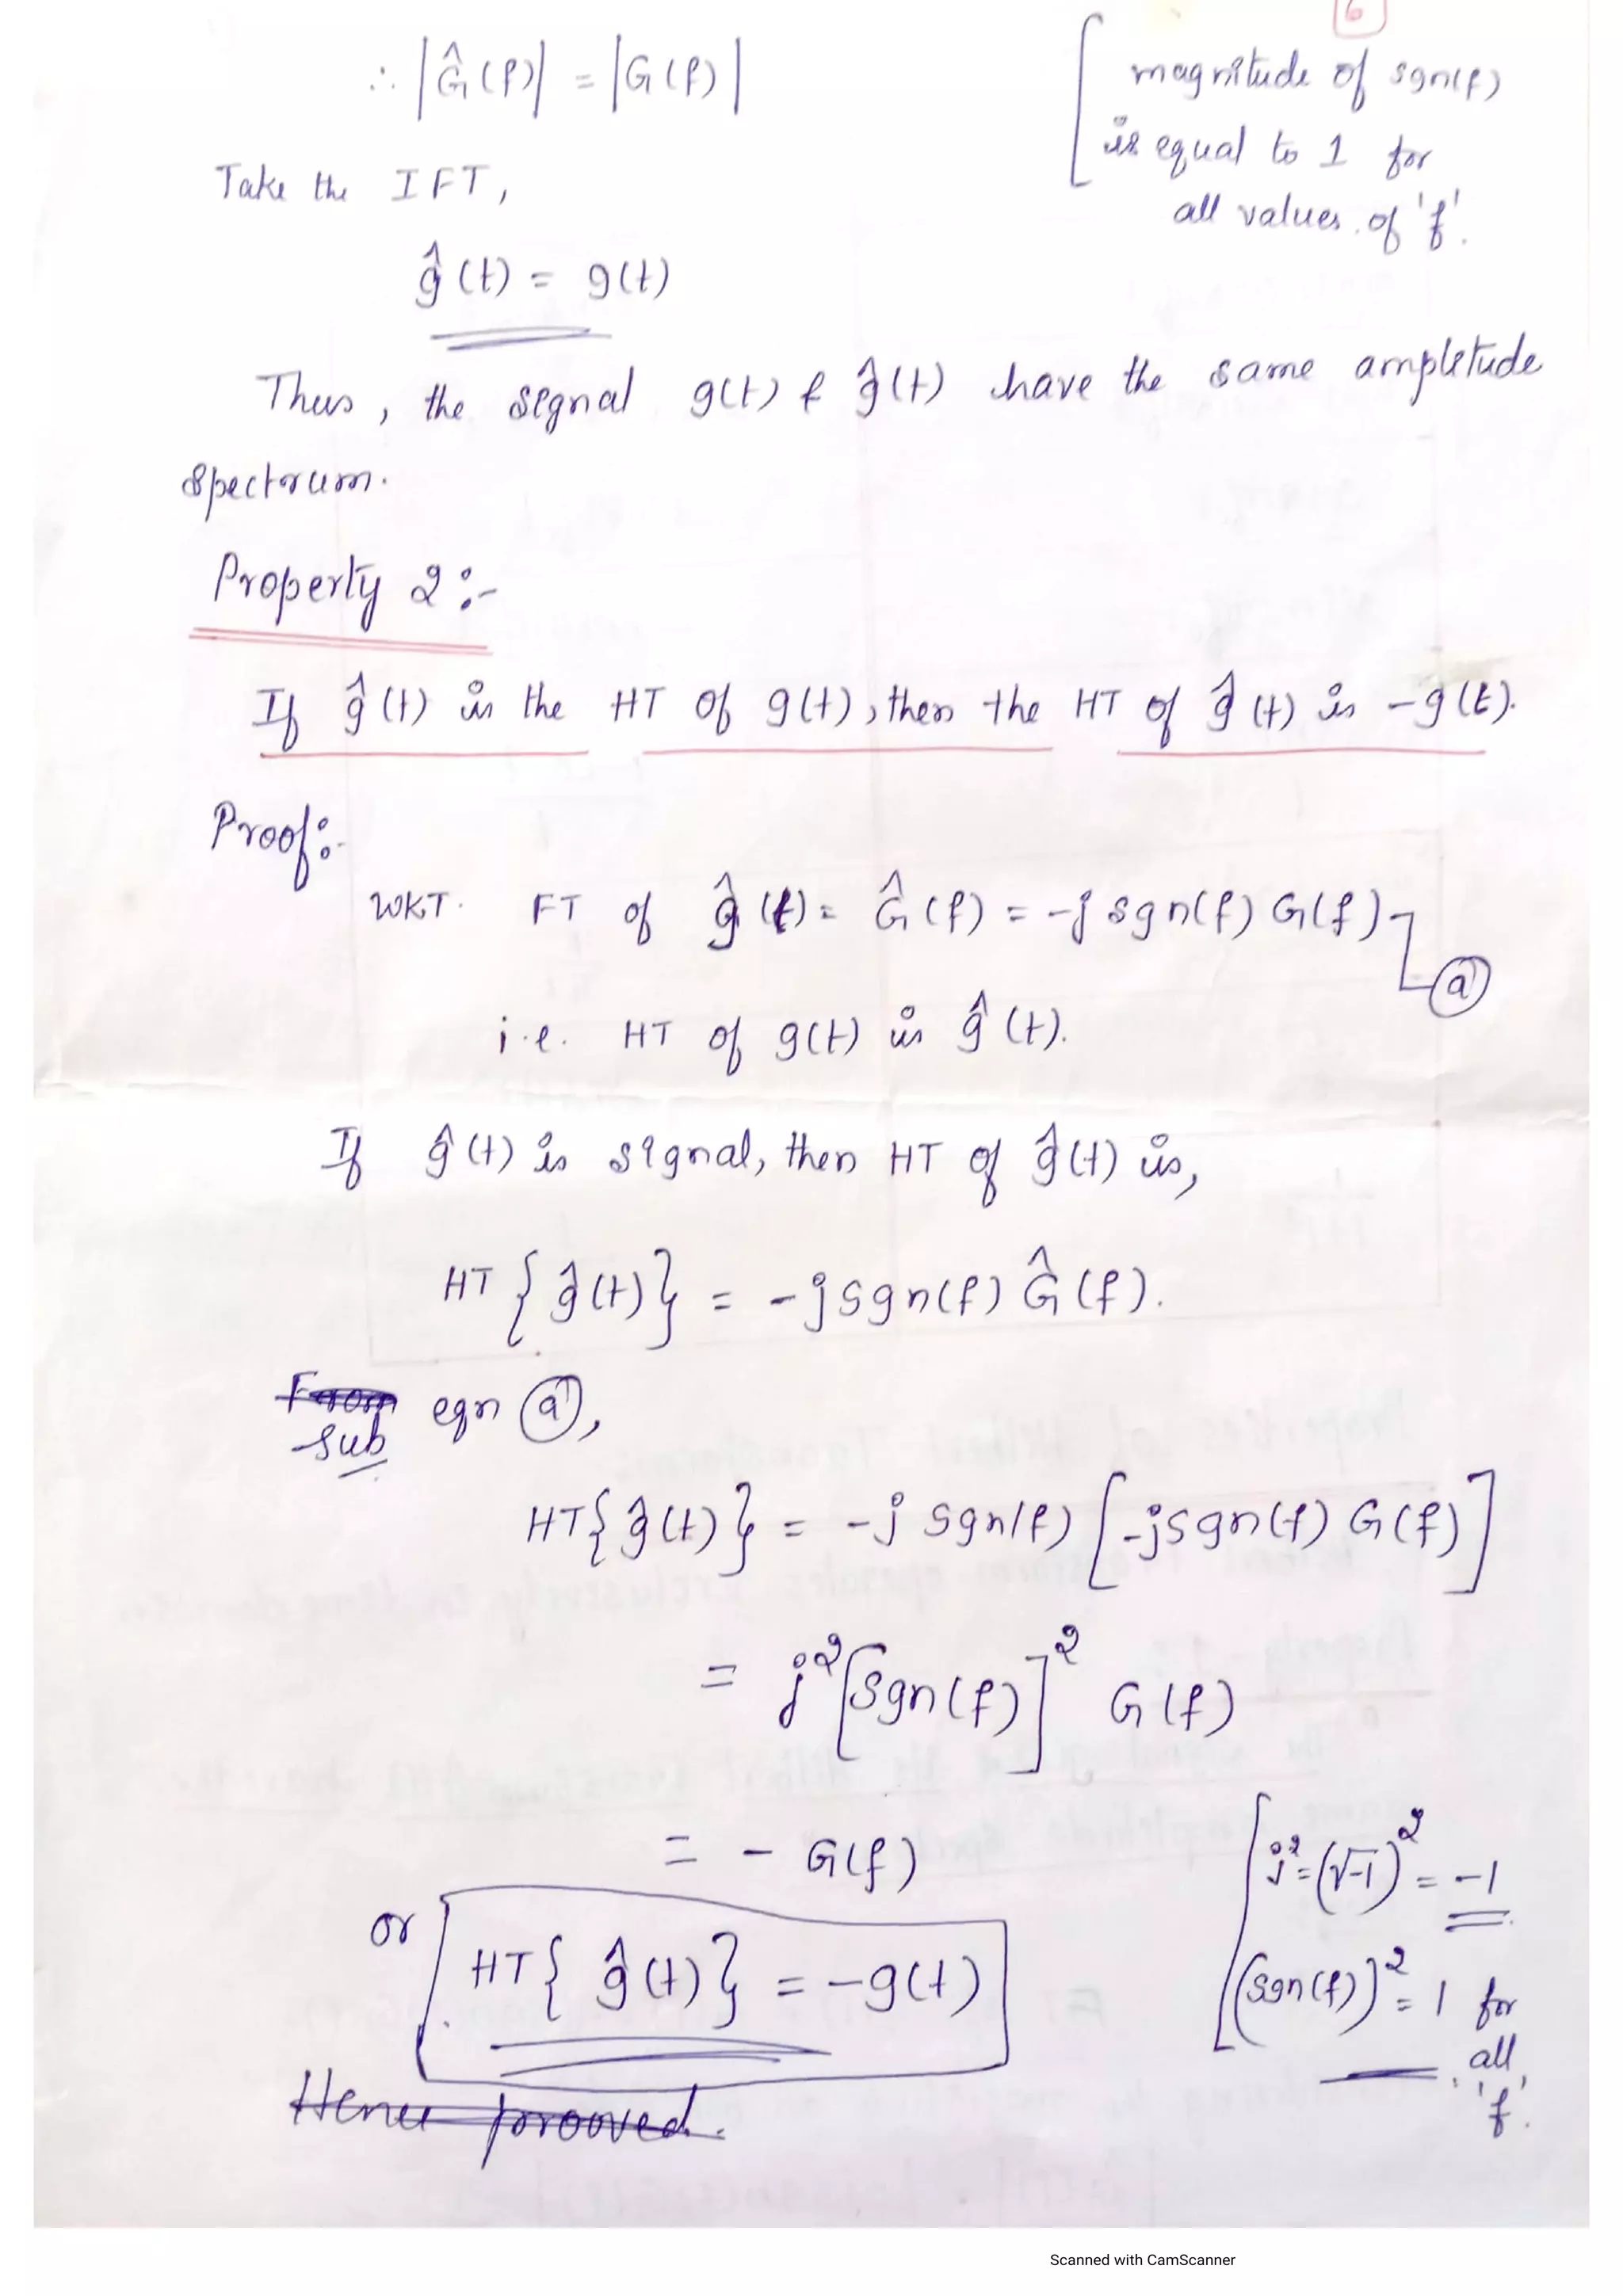 6
∴ |Ĝ(f)| = |G(f)|
[magnitude of sgn(f)
is equal to 1 for
all values of 'f'.
Take the IFT,
ĝ(t) = g(t)
Thus, the signal g(t) & ĝ(t) have the same amplitude
spectrum.
Property 2 :-
If ĝ(t) is the HT of g(t), then the HT of ĝ(t) is -g(t).
Proof:-
WKT. FT of ĝ(t) = Ĝ(f) = -j sgn(f) G(f)
(a)
i.e. HT of g(t) is ĝ(t).
If ĝ(t) is signal, then HT of ĝ(t) is,
HT {ĝ(t)} = -j sgn(f) Ĝ(f).
From eqn (a),
sub
HT{ĝ(t)} = -j sgn(f) [-j sgn(f) G(f)]
= j² [sgn(f)]² G(f)
= - G(f)
[j² = (√-1)² = -1
or HT{ĝ(t)} = -g(t)
(sgn(f))² = 1 for
all
'f'.
Hence prooved.
Scanned with CamScanner